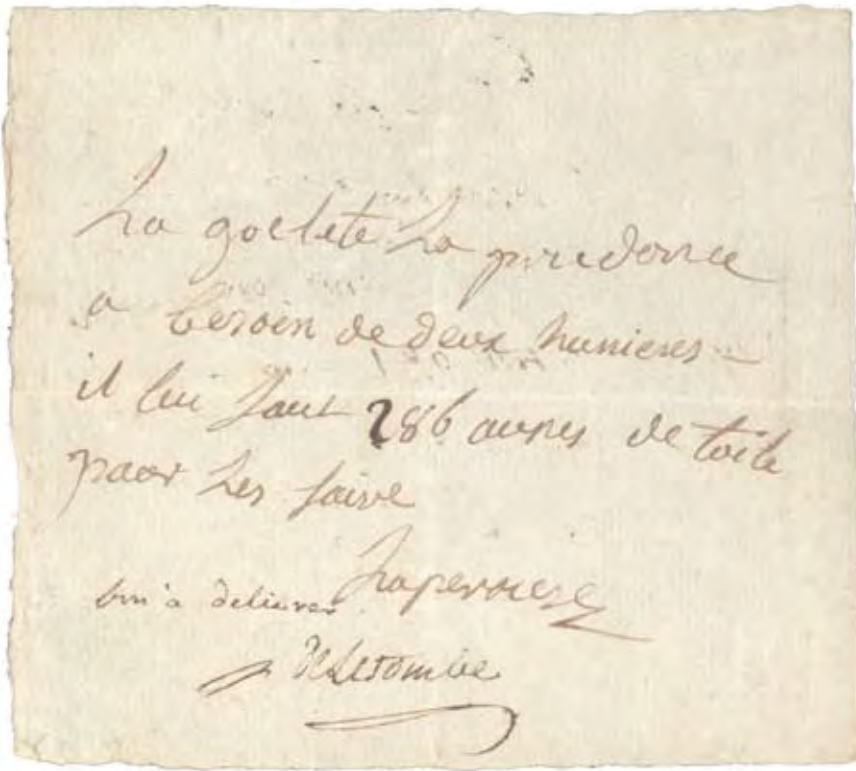 La goelete La prudence
a besoin de deux hunieres
il lui faut 286 aunes de toile
pour Les faire
Laperouse
bon a delivrer